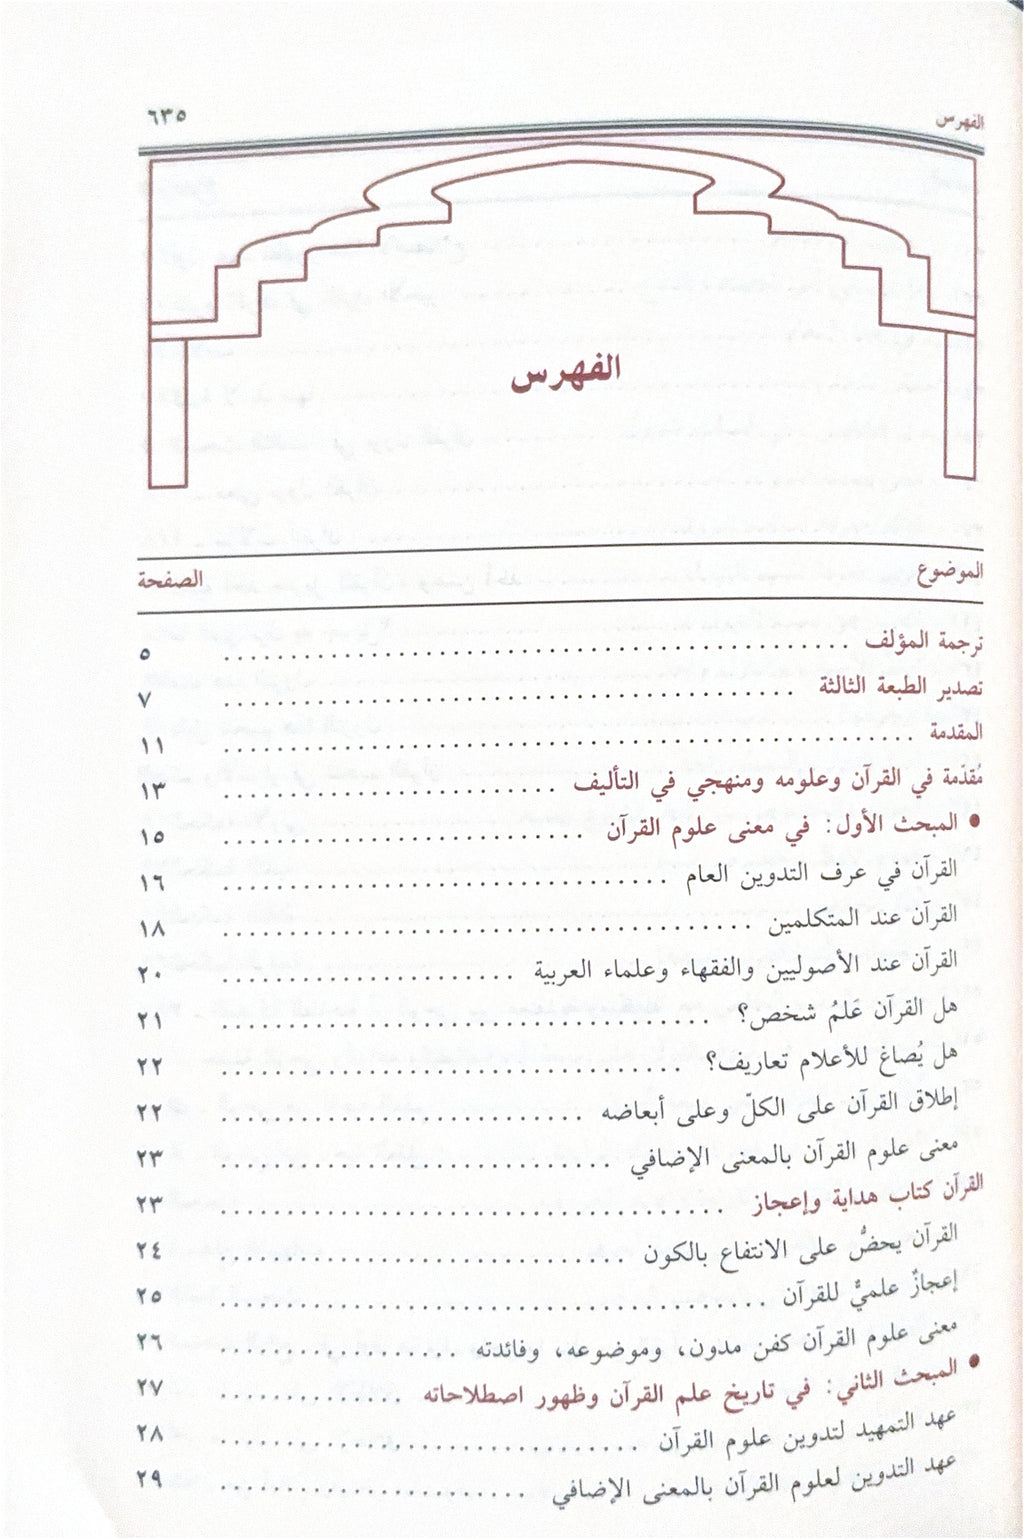 الفهرس ٦٣٥
الفهرس
الموضوع الصفحة
ترجمة المؤلف ........ ٥
تصدير الطبعة الثالثة ........ ٧
المقدمة ........ ١١
مُقدّمة في القرآن وعلومه ومنهجي في التأليف ........ ١٣
● المبحث الأول: في معنى علوم القرآن ........ ١٥
القرآن في عرف التدوين العام ........ ١٦
القرآن عند المتكلمين ........ ١٨
القرآن عند الأصوليين والفقهاء وعلماء العربية ........ ٢٠
هل القرآن عَلمُ شخص؟ ........ ٢١
هل يُصاغ للأعلام تعاريف؟ ........ ٢٢
إطلاق القرآن على الكلّ وعلى أبعاضه ........ ٢٢
معنى علوم القرآن بالمعنى الإضافي ........ ٢٣
القرآن كتاب هداية وإعجاز ........ ٢٣
القرآن يحضُّ على الانتفاع بالكون ........ ٢٤
إعجازٌ علميٌّ للقرآن ........ ٢٥
معنى علوم القرآن كفن مدون، وموضوعه، وفائدته ........ ٢٦
● المبحث الثاني: في تاريخ علم القرآن وظهور اصطلاحاته ........ ٢٧
عهد التمهيد لتدوين علوم القرآن ........ ٢٨
عهد التدوين لعلوم القرآن بالمعنى الإضافي ........ ٢٩